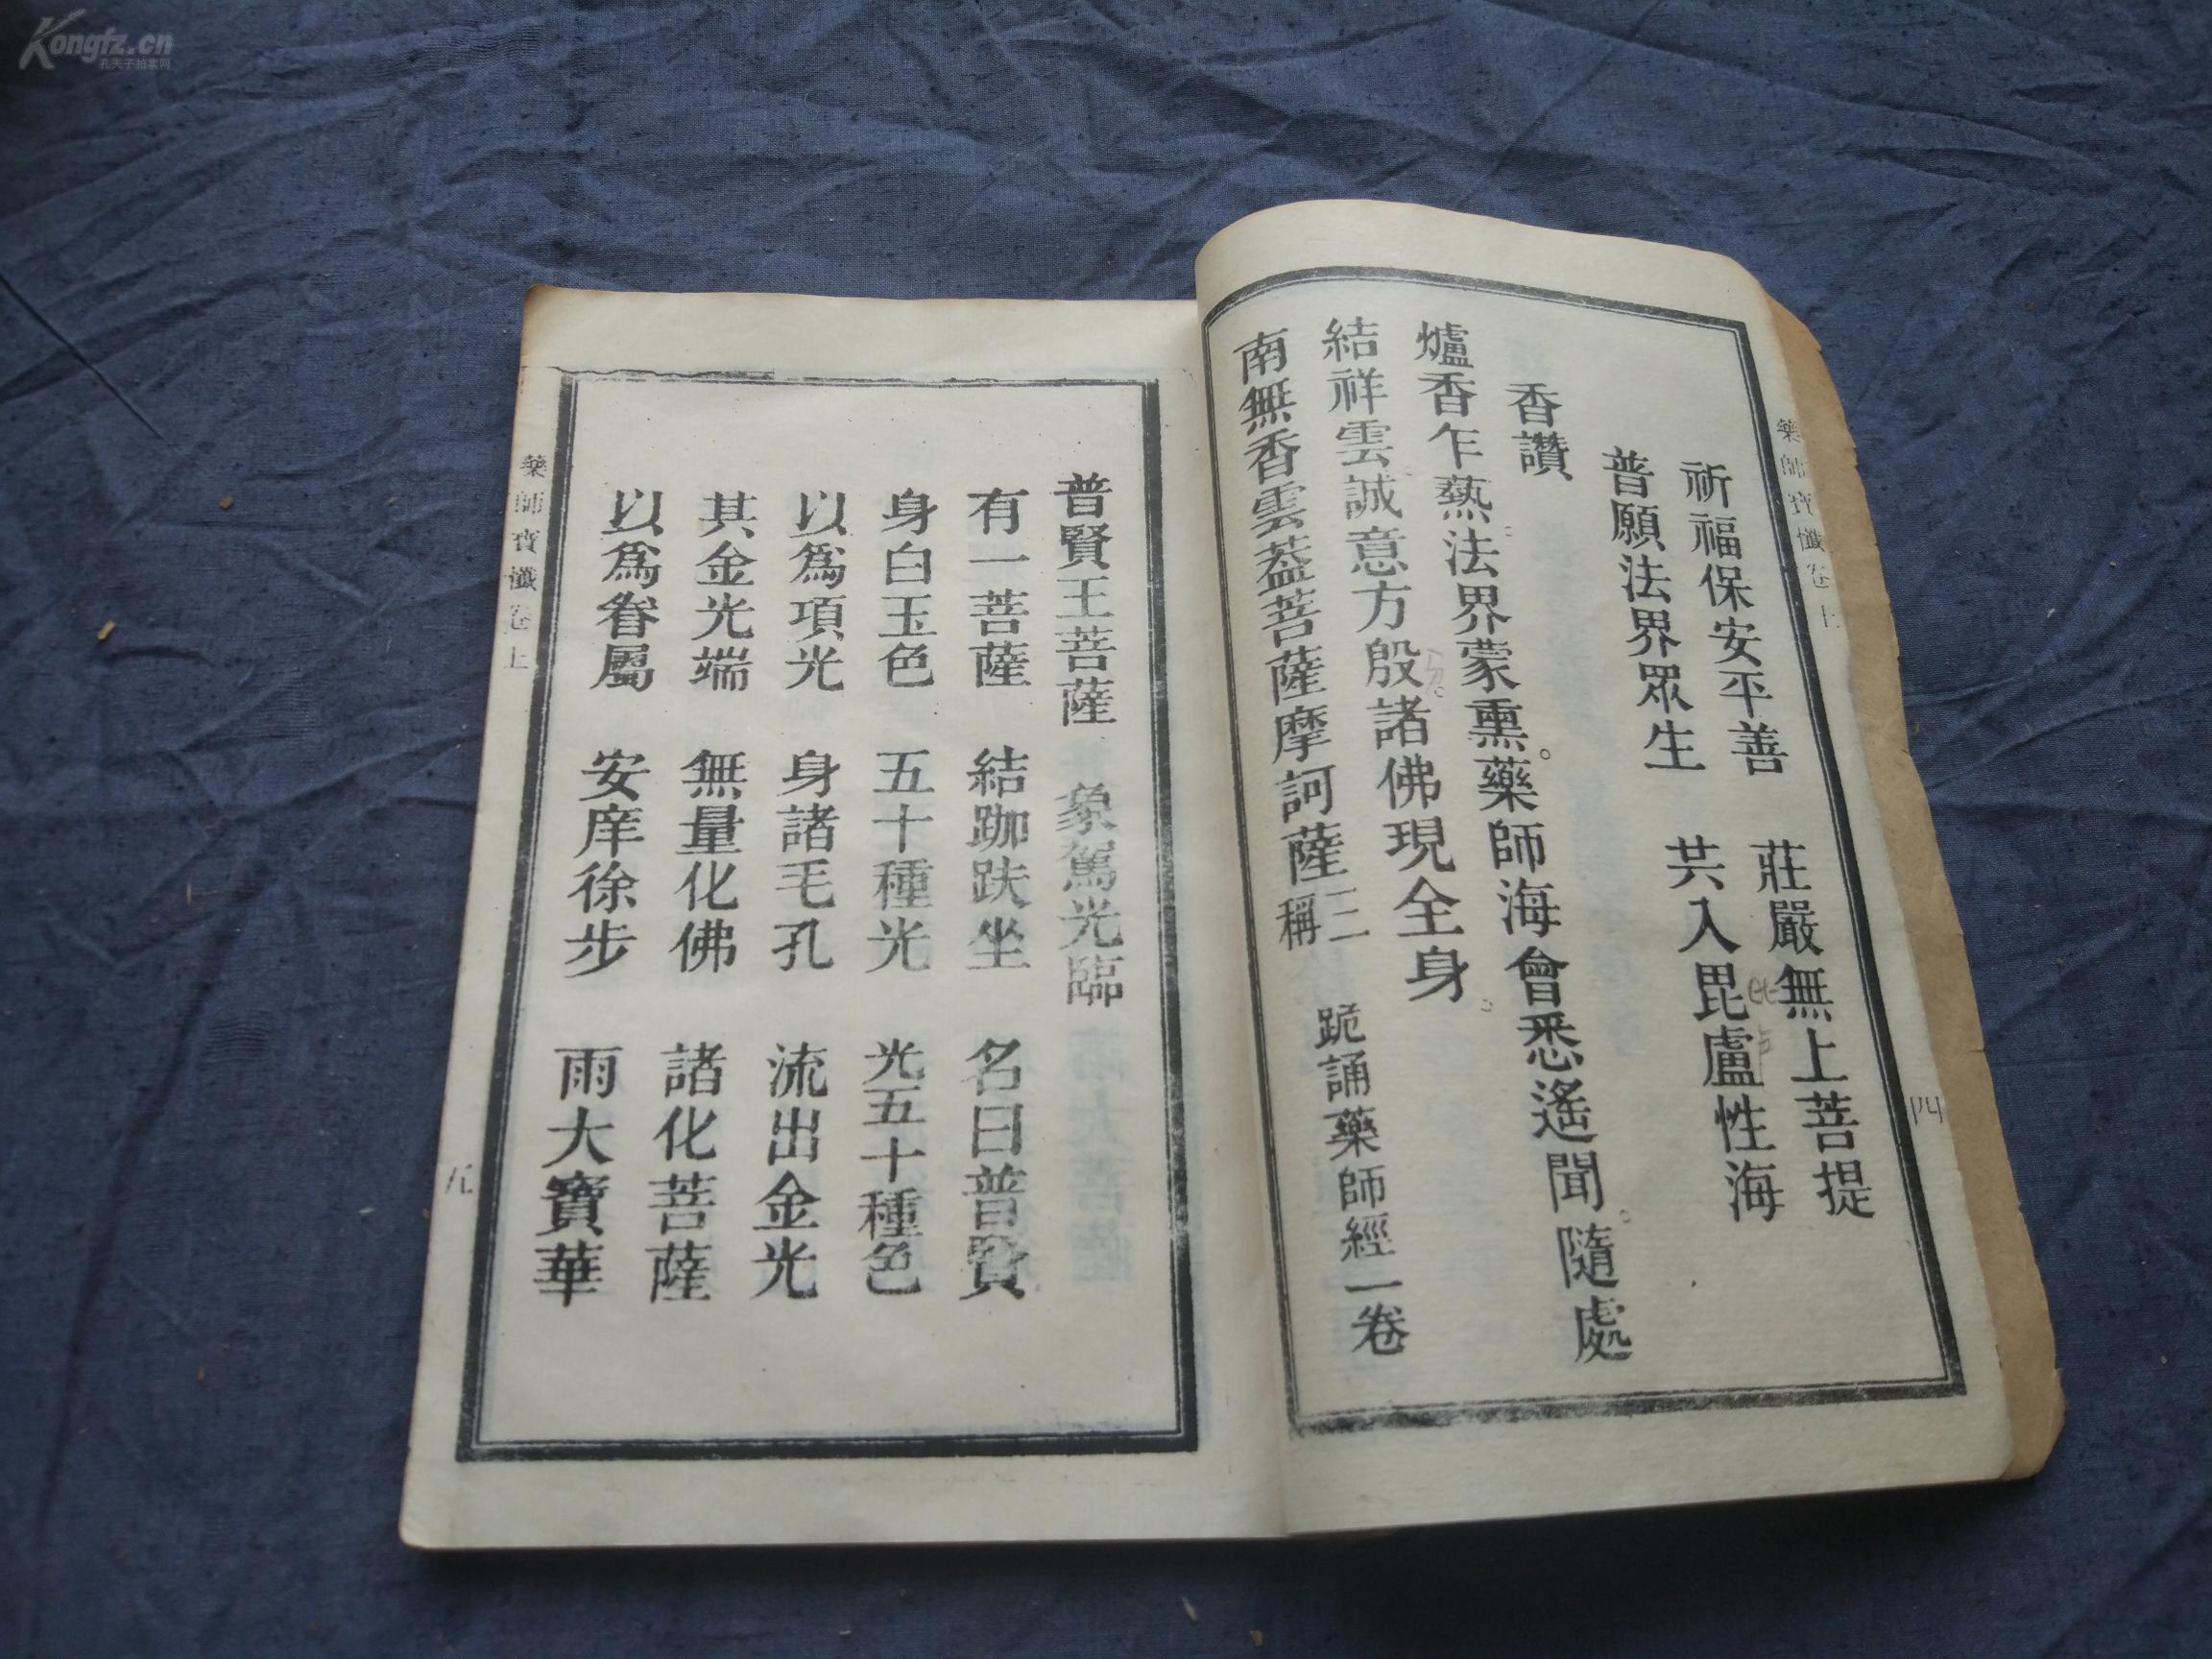 Kongfz.cn
孔夫子拍卖网
藥師寶懺卷上
四
祈福保安平善 莊嚴無上菩提
普願法界眾生 共入毘盧性海
香讚
爐香乍爇法界蒙熏。藥師海會悉遙聞。隨處
結祥雲誠意方殷諸佛現全身。
南無香雲蓋菩薩摩訶薩三稱 跪誦藥師經一卷
普賢王菩薩 象駕光臨
有一菩薩 結跏趺坐 名曰普賢
身白玉色 五十種光 光五十種色
以為項光 身諸毛孔 流出金光
其金光端 無量化佛 諸化菩薩
以為眷屬 安庠徐步 雨大寶華
藥師寶懺卷上
五